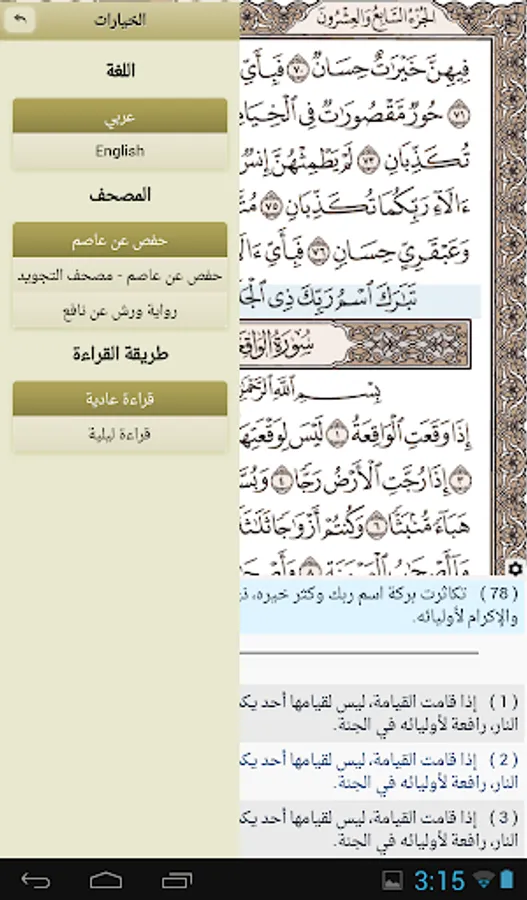 الخيارات
اللغة
عربي
English
المصحف
حفص عن عاصم
حفص عن عاصم - مصحف التجويد
رواية ورش عن نافع
طريقة القراءة
قراءة عادية
قراءة ليلية
الجزء السابع والعشرون
فِيهِنَّ خَيْرَاتٌ حِسَانٌ ٧٠ فَبِأَيِّ
٧١ حُورٌ مَّقْصُورَاتٌ فِي الْخِيَامِ
تُكَذِّبَانِ ٧٣ لَمْ يَطْمِثْهُنَّ إِنسٌ
ءَالَاءِ رَبِّكُمَا تُكَذِّبَانِ ٧٥
وَعَبْقَرِيٍّ حِسَانٍ ٧٦ فَبِأَيِّ ءَالَا
تَبَارَكَ اسْمُ رَبِّكَ ذِي الْجَ
سُورَةُ الْوَاقِعَ
بِسْمِ اللَّهِ الرَّحْمَٰ
إِذَا وَقَعَتِ الْوَاقِعَةُ ١ لَيْسَ لِوَقْعَتِهَا
٣ إِذَا رُجَّتِ الْأَرْضُ رَجًّا ٤ وَبُسَّ
هَبَاءً مُّنبَثًّا ٦ وَكُنتُمْ أَزْوَاجًا ثَلَاثَةً
( 78 ) تكاثرت بركة اسم ربك وكثر خيره،
والإكرام لأوليائه.
( 1 ) إذا قامت القيامة، ليس لقيامها أحد يك
النار، رافعة لأوليائه في الجنة.
( 2 ) إذا قامت القيامة، ليس لقيامها أحد يك
النار، رافعة لأوليائه في الجنة.
( 3 ) إذا قامت القيامة، ليس لقيامها أحد يك
النار، رافعة لأوليائه في الجنة.
3:15